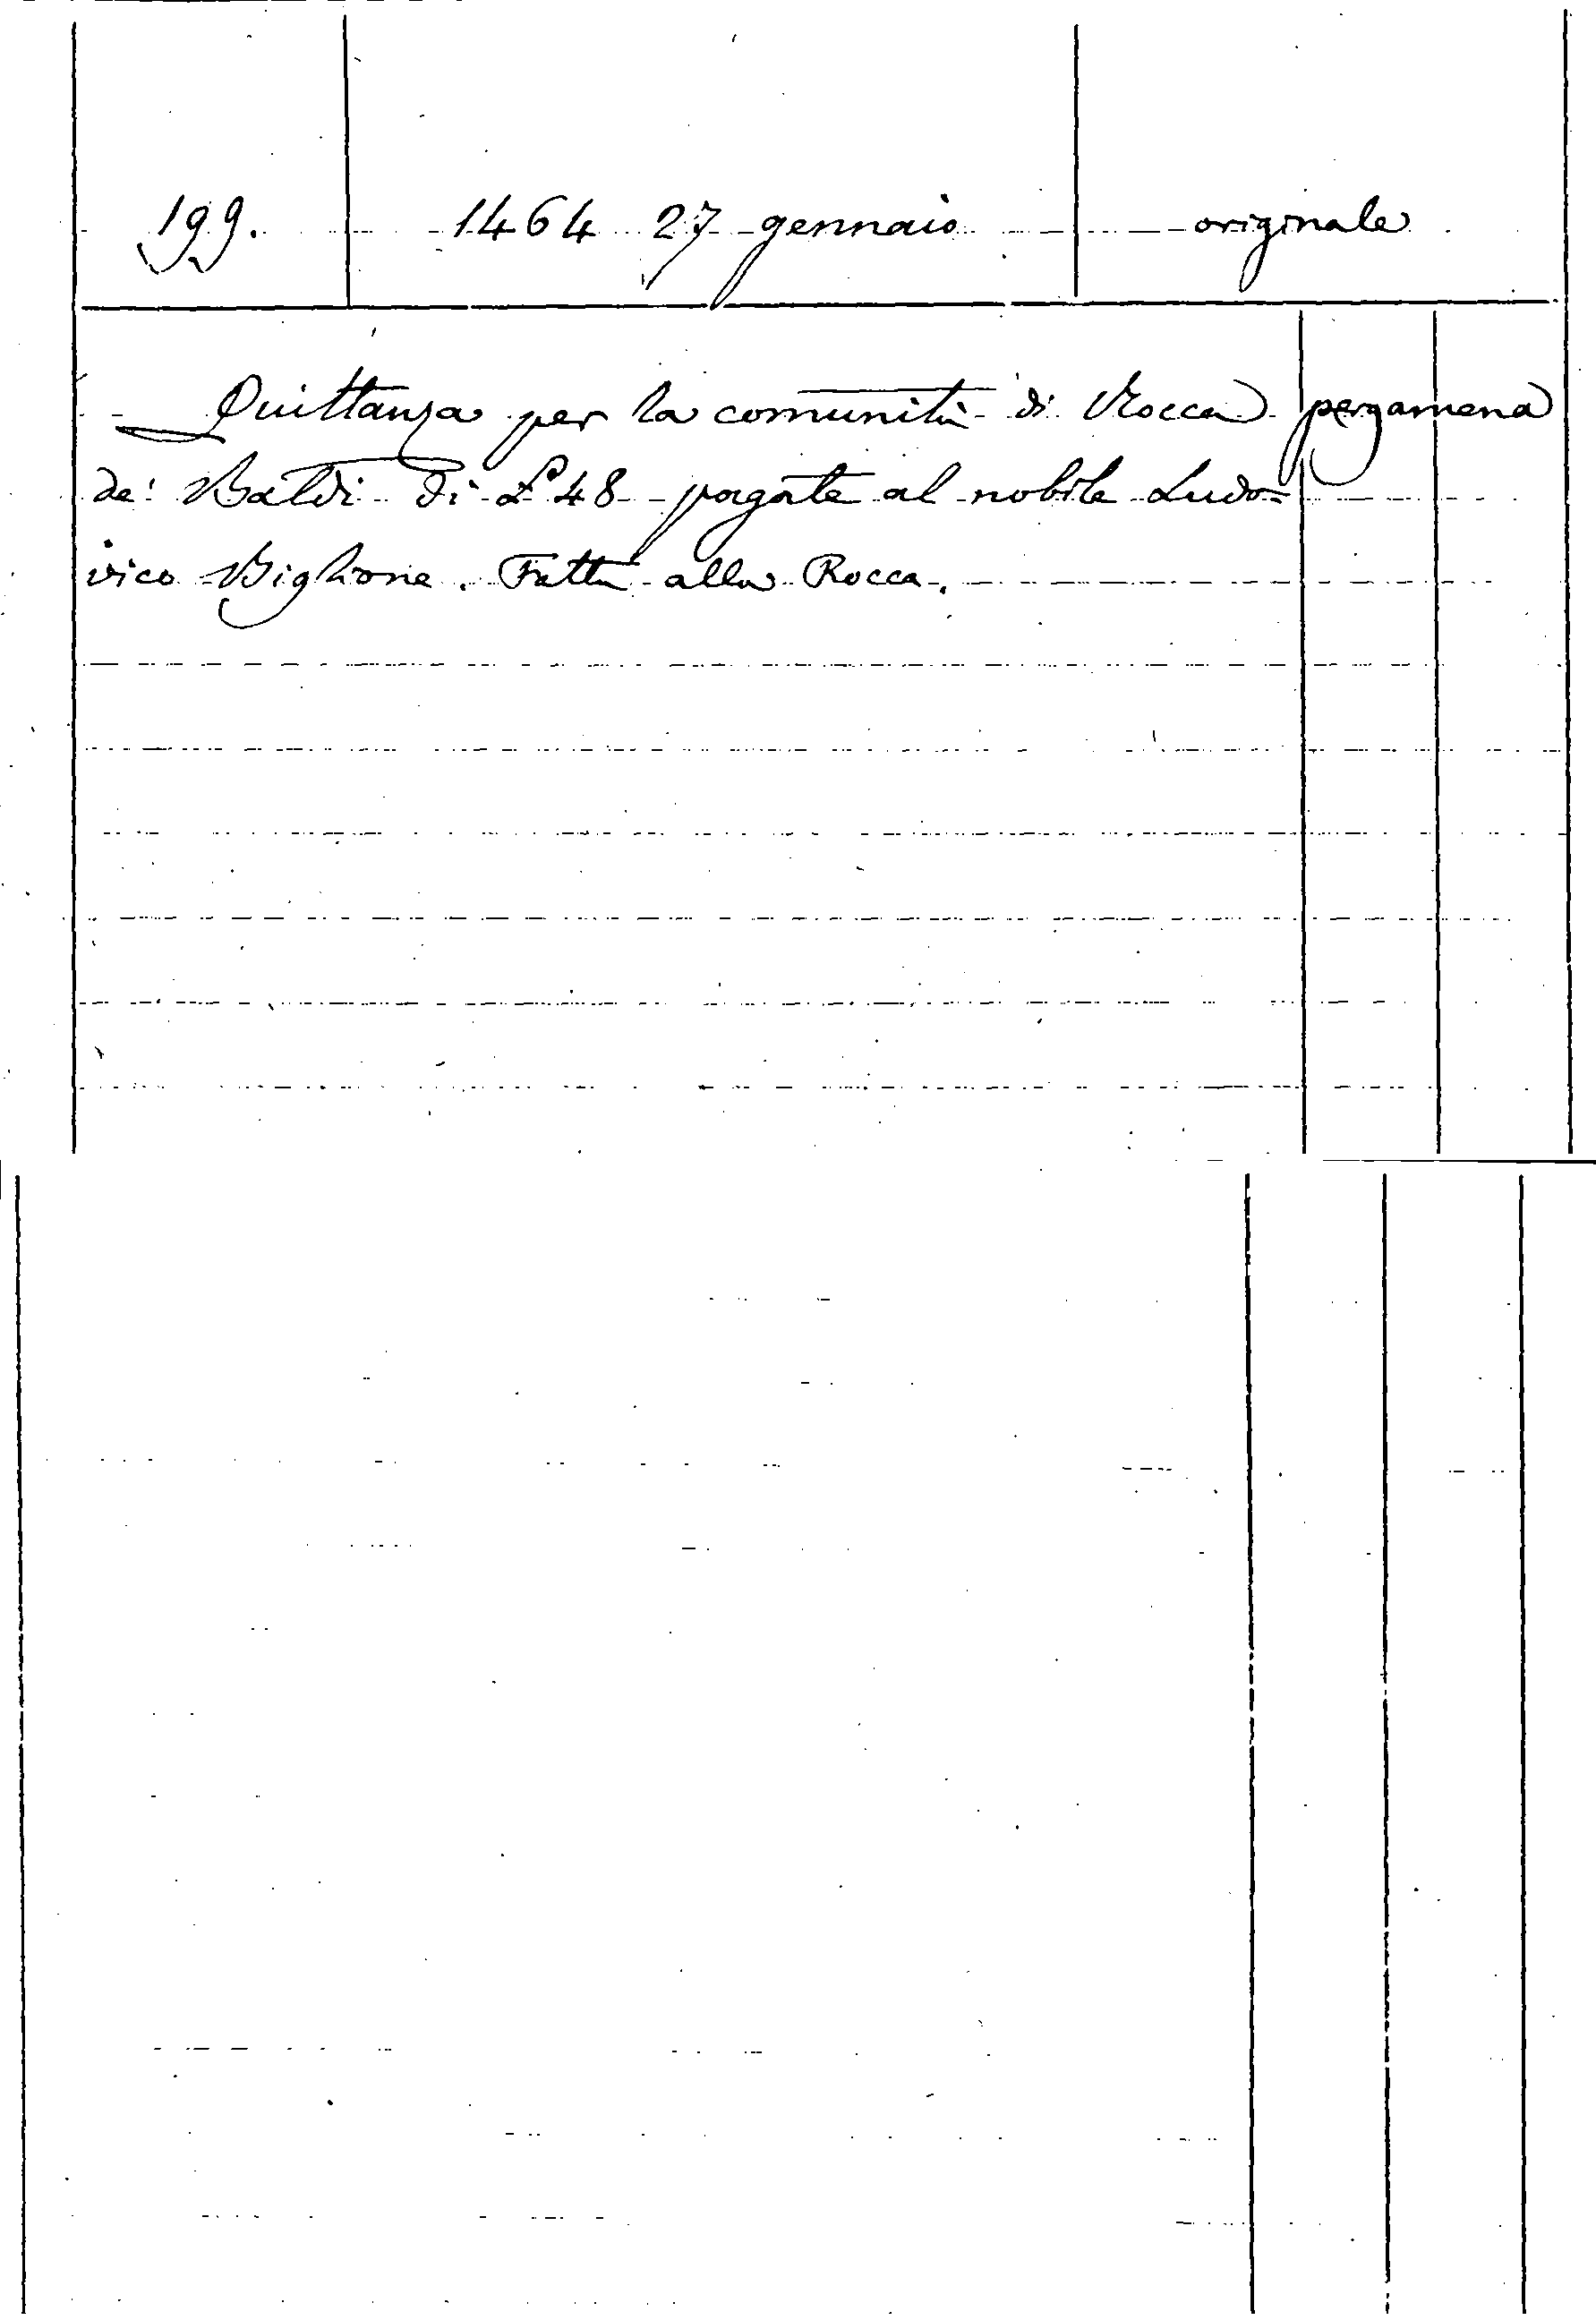 199. 1464 27 gennaio originale
Quittanza per la comunità di Rocca pergamena
de' Baldi di £ 48 pagate al nobile Ludo=
vico Biglione. Fatta alla Rocca.